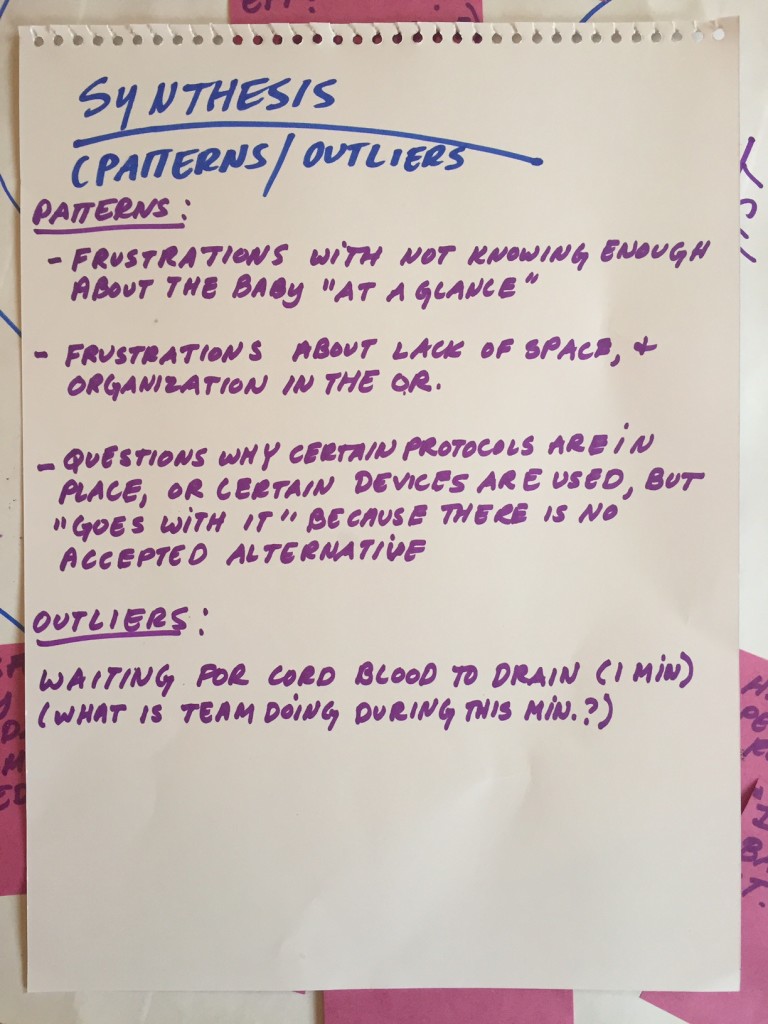 SYNTHESIS
(PATTERNS/OUTLIERS
PATTERNS:
- FRUSTRATIONS WITH NOT KNOWING ENOUGH
ABOUT THE BABY "AT A GLANCE"
- FRUSTRATIONS ABOUT LACK OF SPACE, +
ORGANIZATION IN THE OR.
- QUESTIONS WHY CERTAIN PROTOCOLS ARE IN
PLACE, OR CERTAIN DEVICES ARE USED, BUT
"GOES WITH IT" BECAUSE THERE IS NO
ACCEPTED ALTERNATIVE
OUTLIERS:
WAITING FOR CORD BLOOD TO DRAIN (1 MIN)
(WHAT IS TEAM DOING DURING THIS MIN.?)